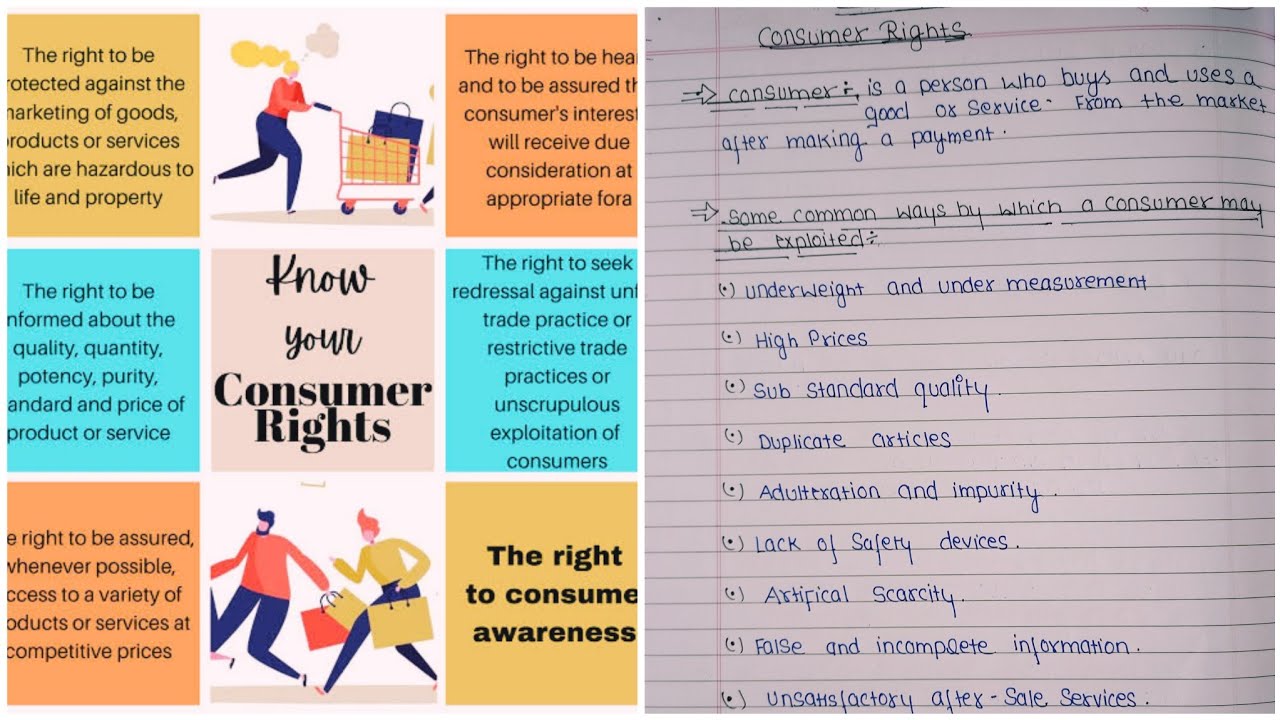 The right to be
rotected against the
marketing of goods,
products or services
hich are hazardous to
life and property
The right to be hear
and to be assured th
consumer's interest
will receive due
consideration at
appropriate fora
The right to be
nformed about the
quality, quantity,
potency, purity,
andard and price of
product or service
Know
your
Consumer
Rights
The right to seek
redressal against unf
trade practice or
restrictive trade
practices or
unscrupulous
exploitation of
consumers
e right to be assured,
whenever possible,
ccess to a variety of
oducts or services at
competitive prices
The right
to consume
awareness
Consumer Rights
⇒ consumer÷ is a person who buys and uses a
good or service. From the market
after making a payment.
⇒ some common ways by which a consumer may
be exploited÷
(•) underweight and under measurement
(•) High Prices
(•) Sub standard quality.
(•) Duplicate articles
(•) Adulteration and impurity.
(•) Lack of Safety devices.
(•) Artifical Scarcity.
(•) False and incomplete information.
(•) Unsatisfactory after-Sale Services.